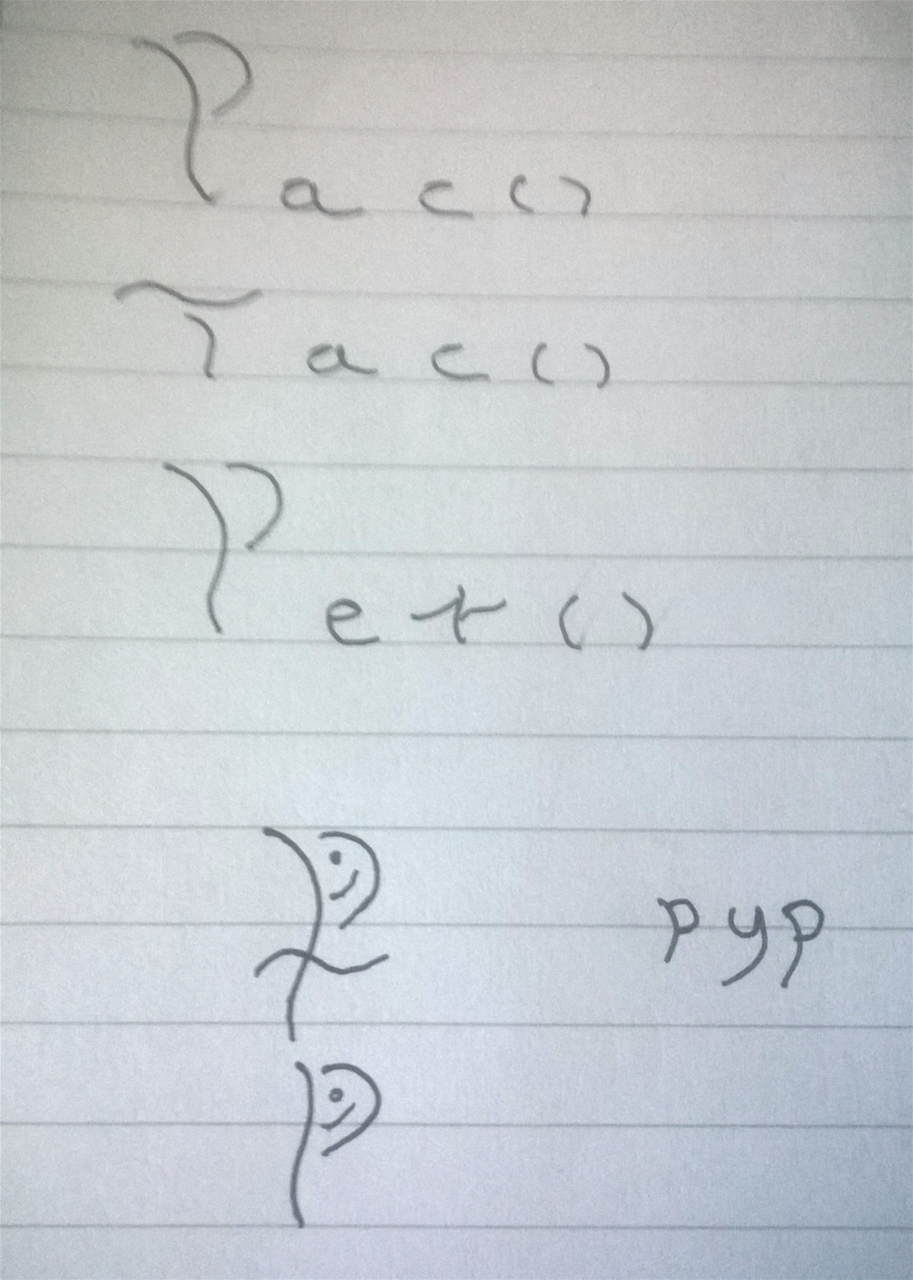 Pac()
Tac()
Pet()
P pyp
P